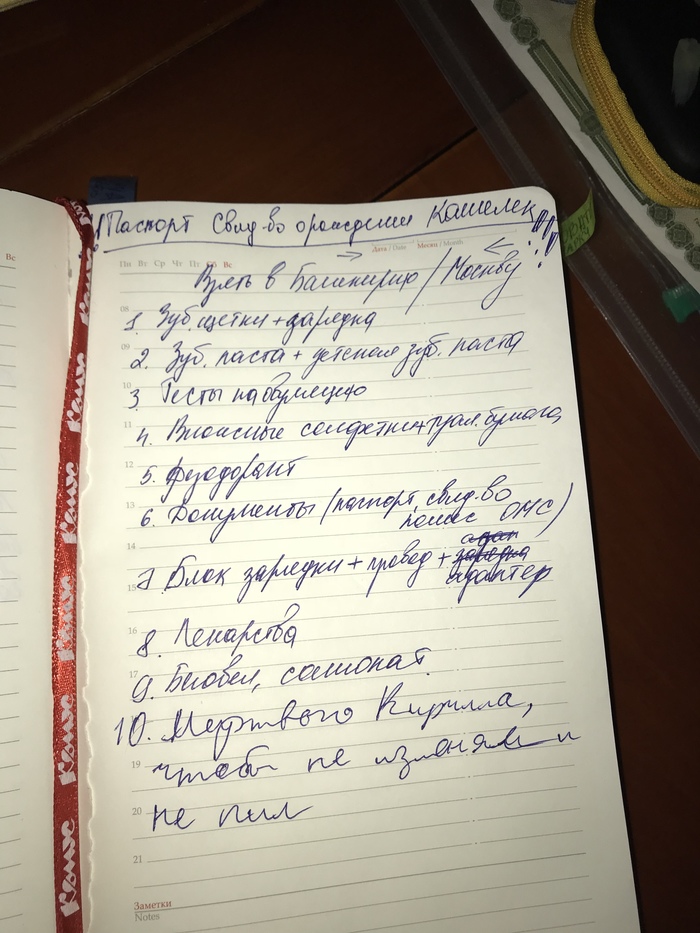 Вс
! Паспорт Свид-во о рождении Кошелек !!!
Дата / Date Месяц / Month
Пн Вт Ср Чт Пт Сб Вс
Взять в Башкирию / Москву
08
1. Зуб. щетки + зарядка
09
2. Зуб. паста + детская зуб. паста
10
3. Тесты на овуляцию
11
4. Влажные салфетки + туал. бумага
12
5. Дезодорант
13
6. Документы (паспорт, свид-во
полис ОМС)
14
7. Блок зарядки + провод +
адаптер
15
16
8. Лекарства
17
9. Беговел, самокат
10. Мертвого Кирилла,
19
чтобы не изменял и
20
не пил
21
Заметки
Notes
Комус
Комус
Комус
Комус
Комус